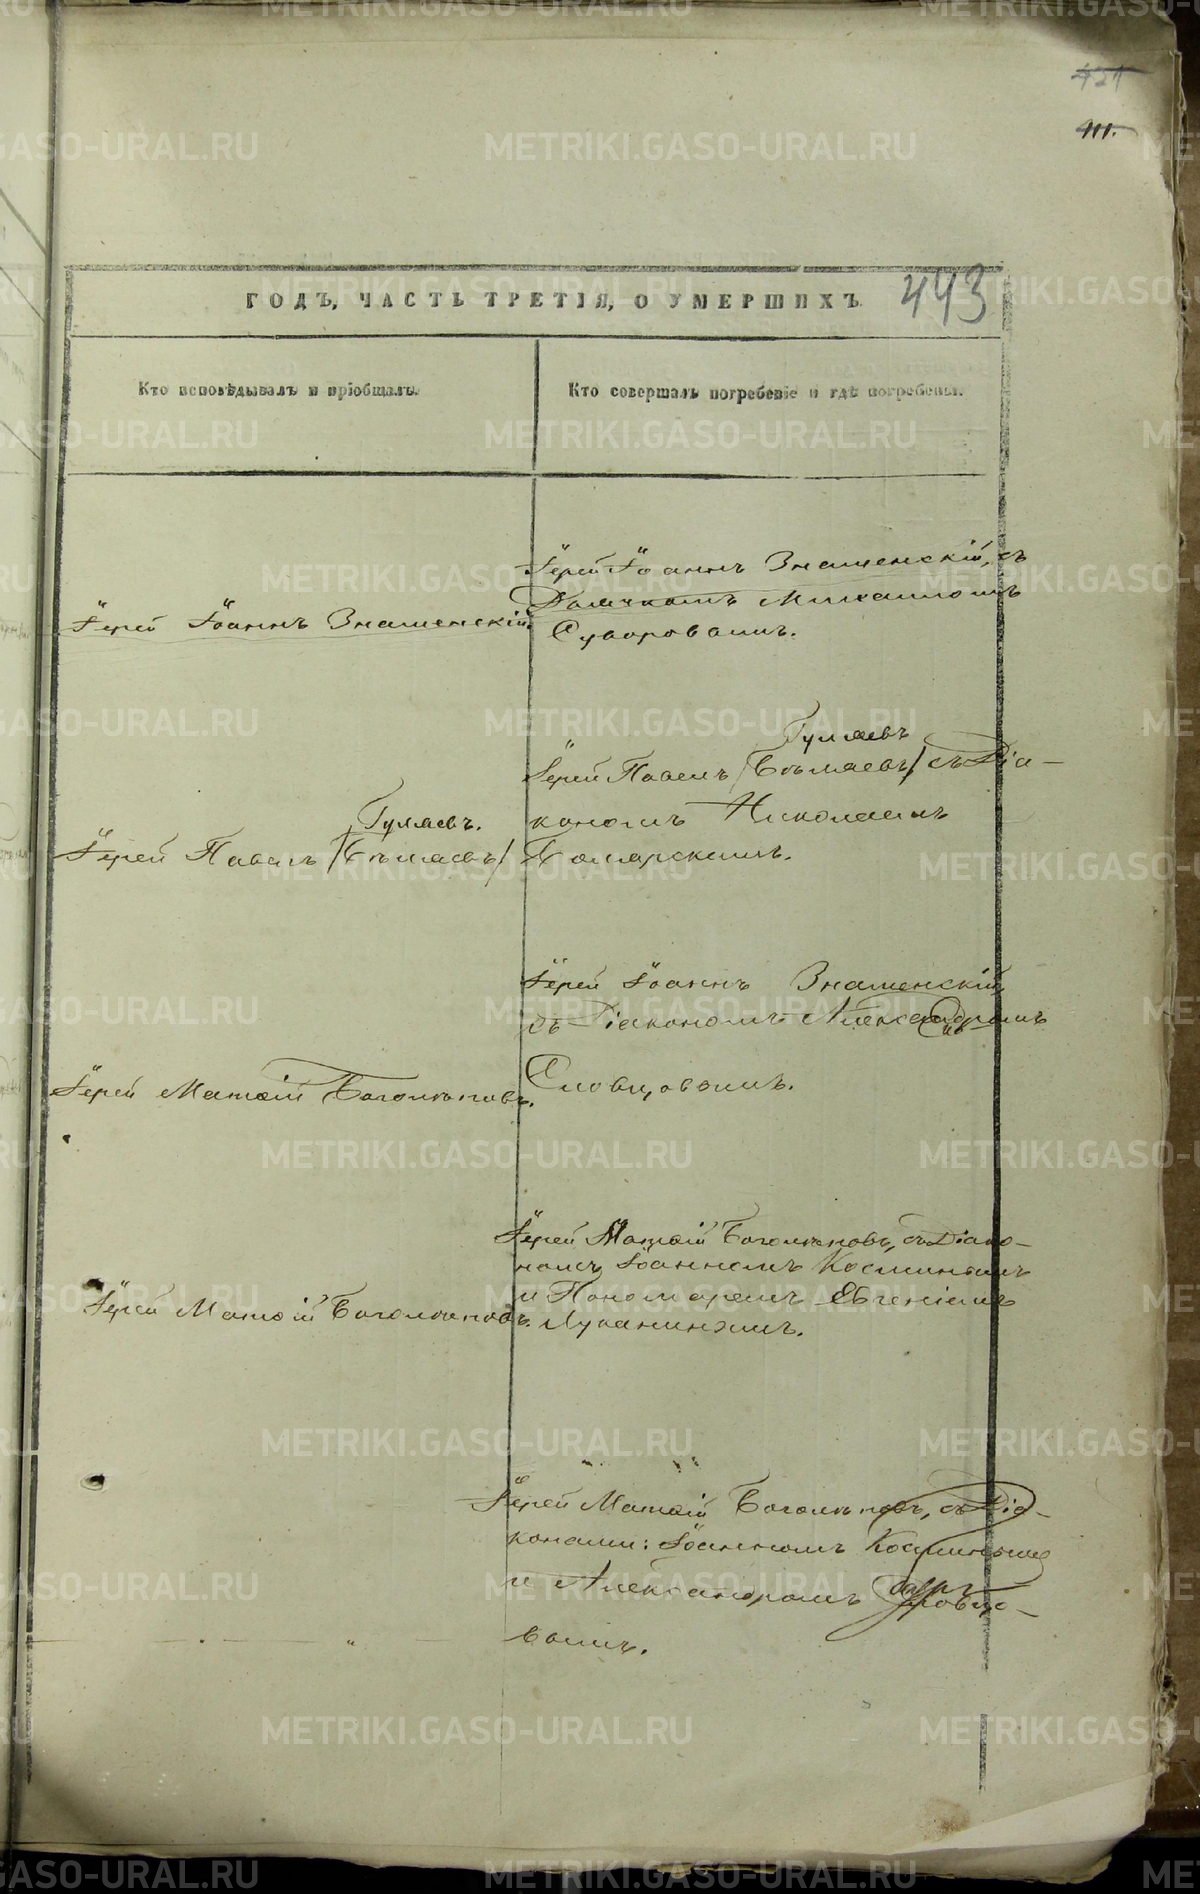 111.
443
ГОДЪ, ЧАСТЬ ТРЕТІЯ, О УМЕРШИХЪ.
Кто исповѣдывалъ и пріобщалъ.
Кто совершалъ погребеніе и гдѣ погребены.
Іерей Іоаннъ Знаменскій.
Іерей Іоаннъ Знаменскій, съ
Дьячкомъ Михаиломъ
Суворовымъ.
Гуляевъ.
Іерей Павелъ /Бѣляевъ/
Гуляевъ
Іерей Павелъ /Бѣляевъ/ съ Діа-
кономъ Николаемъ
Іерей Матѳій Боголѣповъ.
Іерей Іоаннъ Знаменскій
съ Діакономъ Александромъ
Словцовымъ.
Іерей Матѳій Боголѣповъ.
Іерей Матѳій Боголѣповъ, съ Діако-
номъ Іоанномъ Косминымъ
и Пономаремъ Евгеніемъ
Луканинымъ.
Іерей Матѳій Боголѣповъ, съ Діа-
конами: Іоанномъ Косминымъ
и Александромъ Словцо-
вымъ.
METRIKI.GASO-URAL.RU